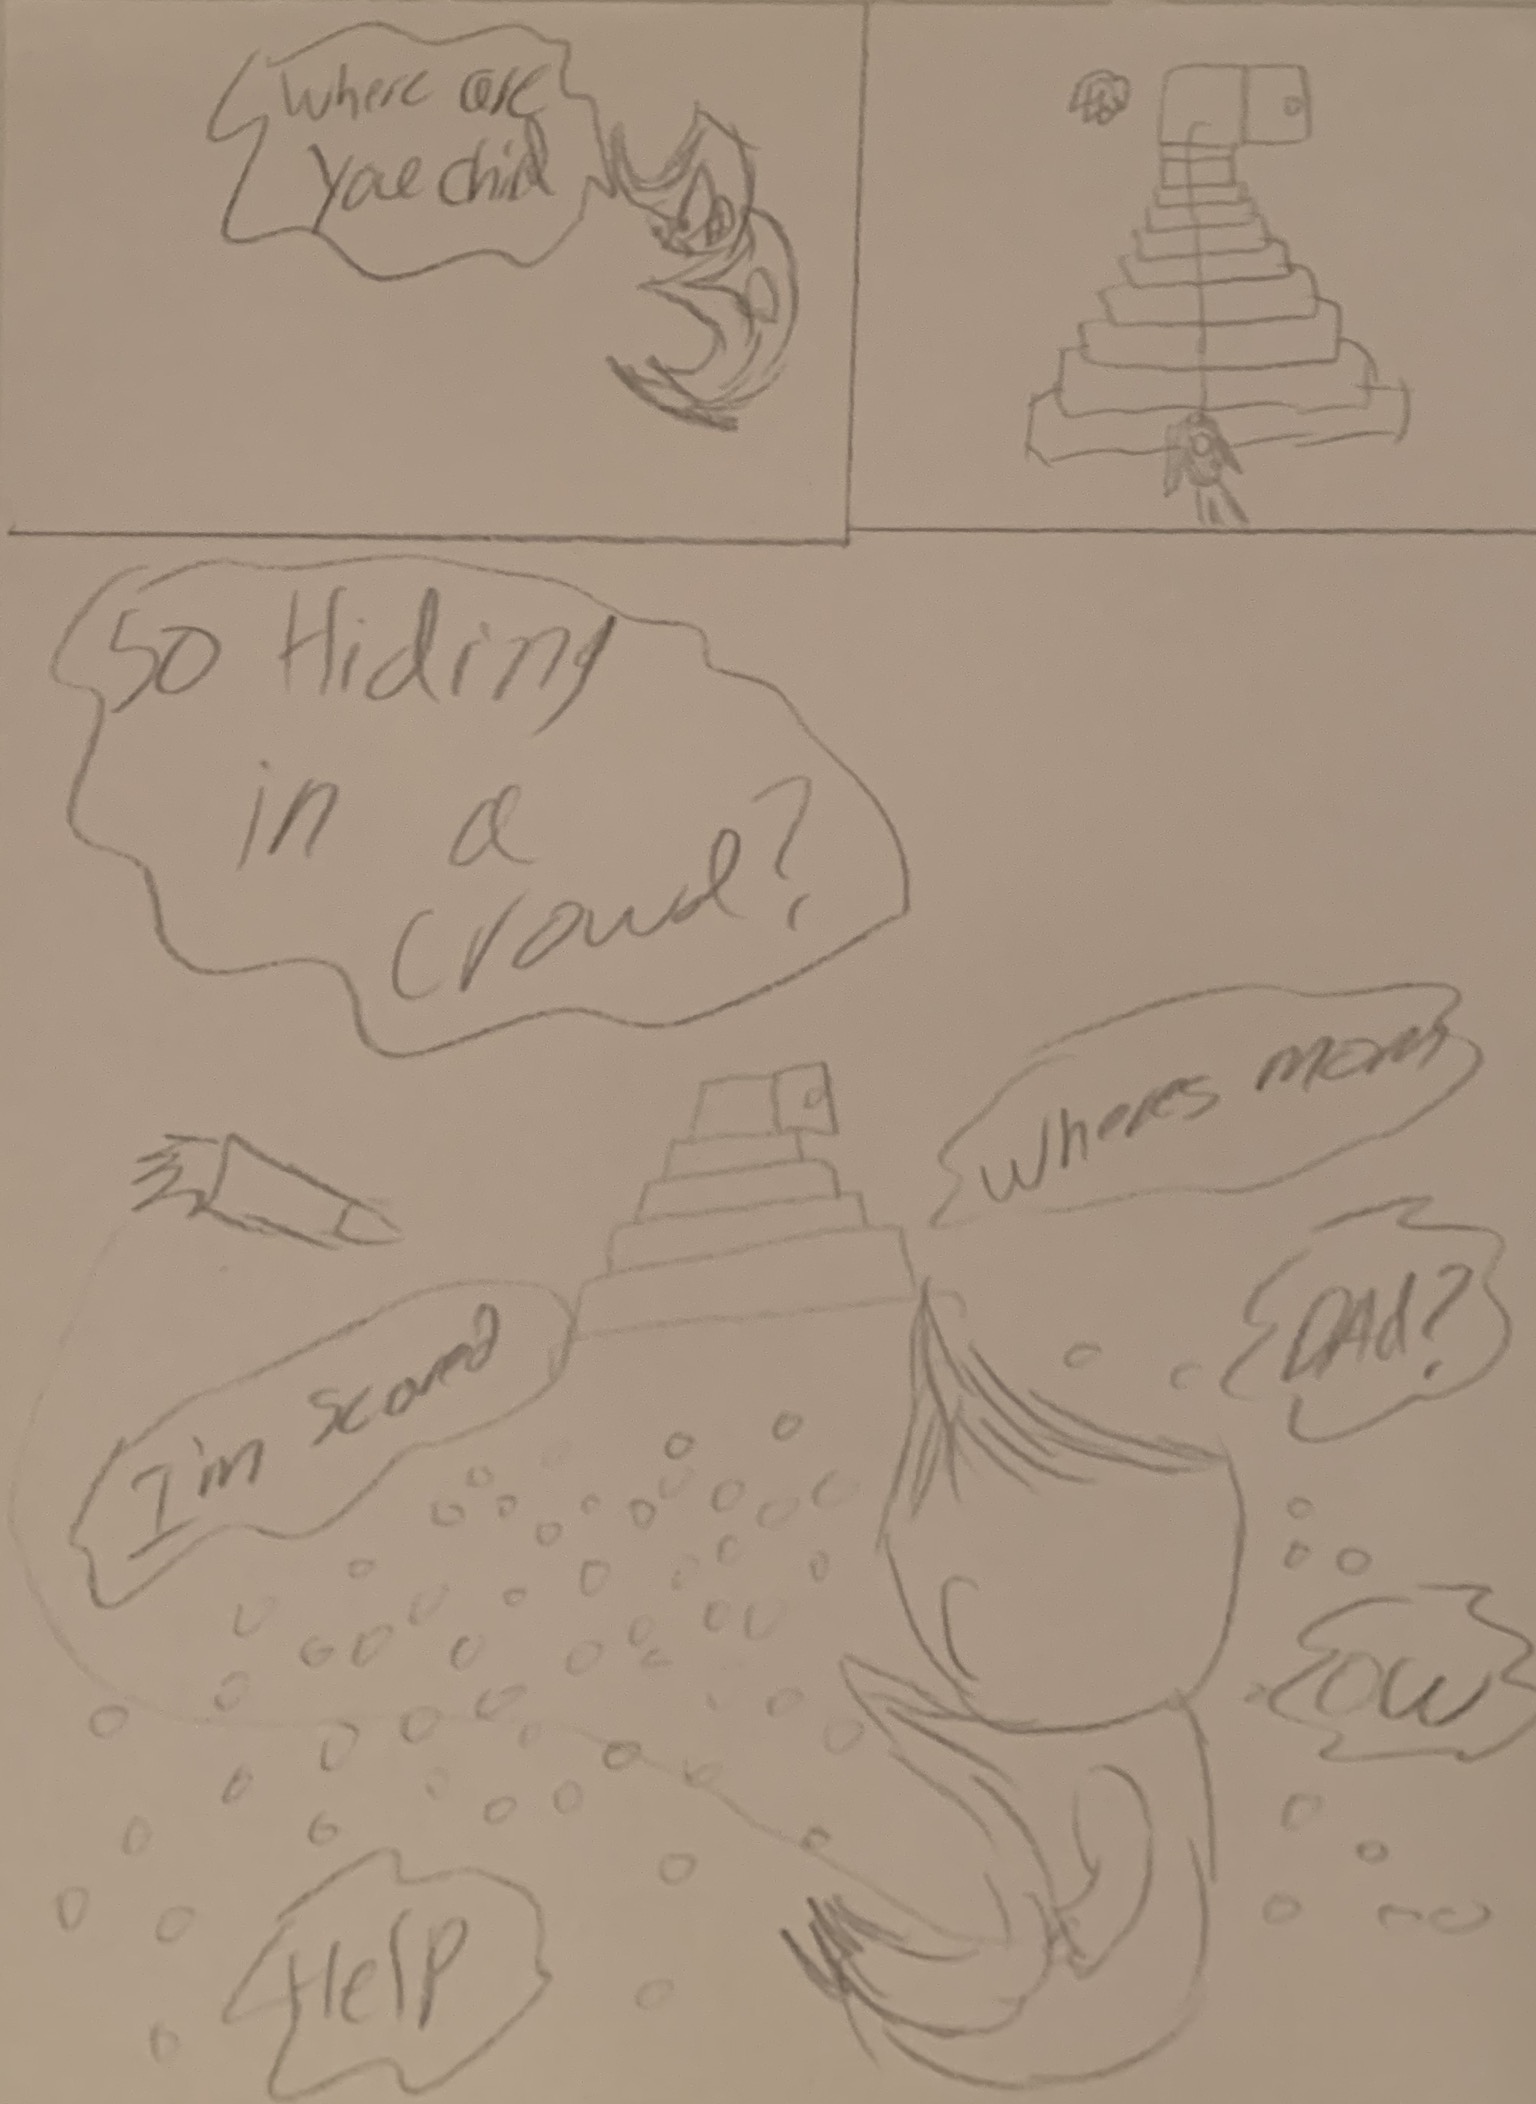 Where are
you child
So Hiding
in a
crowd?
Wheres mom
DAd?
I'm scared
OW
Help